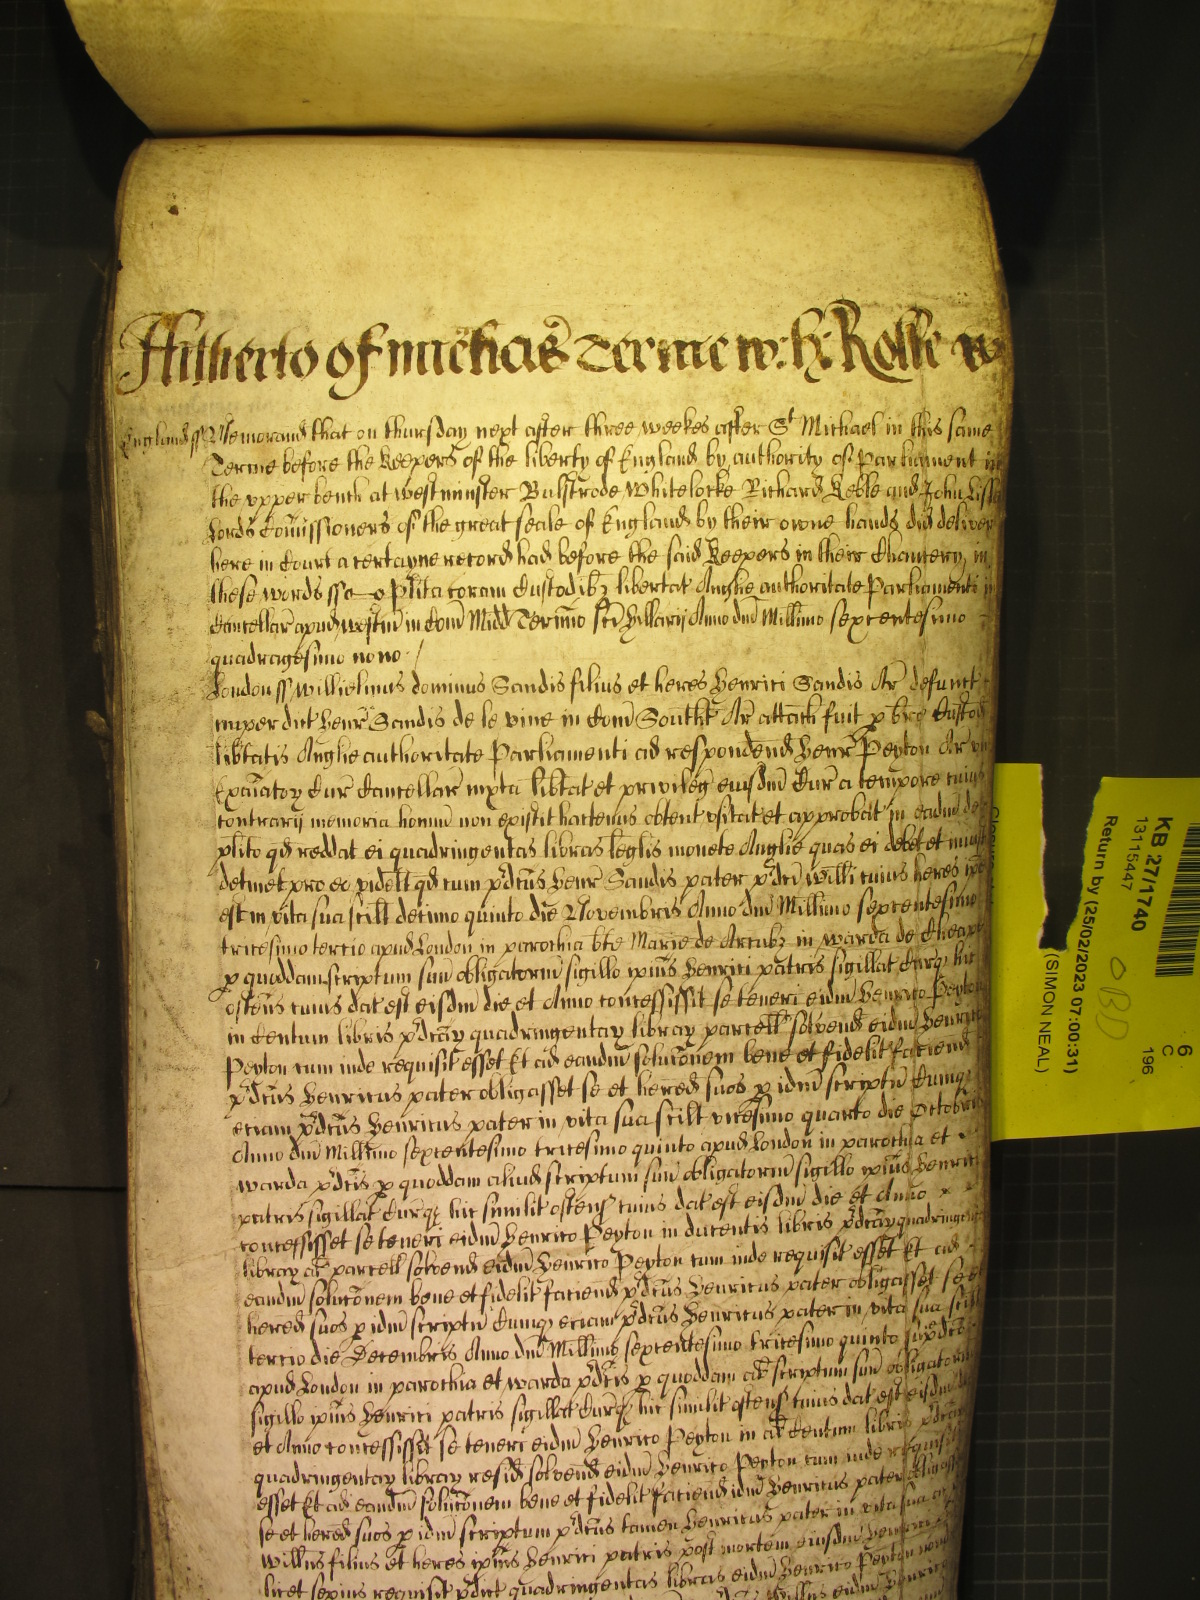 Hitherto of Michais Terme w: h: Rolle w
England ss Memorand that on thursday next after three weekes after St Michael in this same
Terme before the Keepers of the liberty of England by authority of Parliament in
the vpper bench at westminster Bulstrode Whitelocke Richard Keble and John Lisle
Lords Comissioners of the great seale of England by their owne hands did deliver
here in Court a certayne record had before the said Keepers in their Chancery in
these words ss Plita coram Custodibz libertat Anglie authoritate Parliamenti in
Cancellar apud westm in Com Midd Termino sci Hillarij Anno dni Millimo sexcentesimo
quadragesimo nono
London ss Willielmus dominus Sandis filius et heres Henrici Sandis Ar defunct
nuper dict Henr Sandis de le vine in Com South Ar attach fuit p bre Custod
libtatis Anglie authoritate Parliamenti ad respondend Henr Peyton Ar vn
Exatoy Cur Cancellar iuxta libtat et privileg eiusdm Cur a tempore cuius
contrarij memoria homin non existit hactenus obtent vsitat et approbat in eadm de
plito qd reddat ei quadringentas libras leglis monete Anglie quas ei debet et iniust
detinet pro eo videlt qd cum pdcus Henr Sandis pater pdci Willi cuius heres ipe
est in vita sua scilt decimo quinto die Novembris Anno dni Millimo sexcentesimo
tricesimo tercio apud London in parochia bte Marie de Arcubz in warda de Cheape
p quoddam scriptum suu obligatorium sigillo ipius Henrici patris sigillat Curqz hic
ostens cuius dat est eisdm die et Anno concessissit se teneri eidm Henrico Peyton
in Centum libris pdcay quadringentay libray parcell solvend eidm Henrico
Peyton cum inde requisit esset Et ad eandm soluconem bene et fidelit faciend
pdcus Henricus pater obligasset se et hered suos p idm scriptu Cumqz
eciam pdcus Henricus pater in vita sua scilt vicesimo quarto die Octobris
Anno dni Millimo sexcentesimo tricesimo quinto apud London in parochia et
warda pdcis p quoddam aliud scriptum suu obligatorium sigillo ipius Henrici
patris sigillat Curqz hic similit ostens cuius dat est eisdm die et Anno
concessisset se teneri eidm Henrico Peyton in ducentis libris pdcay quadringentay
libray al parcell solvend eidm Henrico Peyton cum inde requisit esset Et ad
eandm soluconem bene et fidelit faciend pdcus Henricus pater obligasset se et
hered suos p idm scriptu Cumqz eciam pdcus Henricus pater in vita sua scilt
tercio die Decembris Anno dni Millimo sexcentesimo tricesimo quinto supdco
apud London in parochia et warda pdcis p quoddam al scriptum suu obligatorium
sigillo ipius Henrici patris sigillat Curqz hic similit ostens cuius dat est eisdm die
et Anno concessisset se teneri eidm Henrico Peyton in al Centum libris pdcay
quadringentay libray resid solvend eidm Henrico Peyton cum inde requisit
esset Et ad eandm soluconem bene et fidelit faciend idm Henricus pater obligasset
se et hered suos p idm scriptum pdcus tamen Henricus pater in vita sua ac
Willus filius et heres ipius Henrici patris post mortem eiusdm Henrici
licet sepius requisit pdict quadringentas libras eidm Henrico Peyton
KB 27/1740
13115447
Return by (25/02/2023 07:00:31)
(SIMON NEAL)
OBD
6
C
196